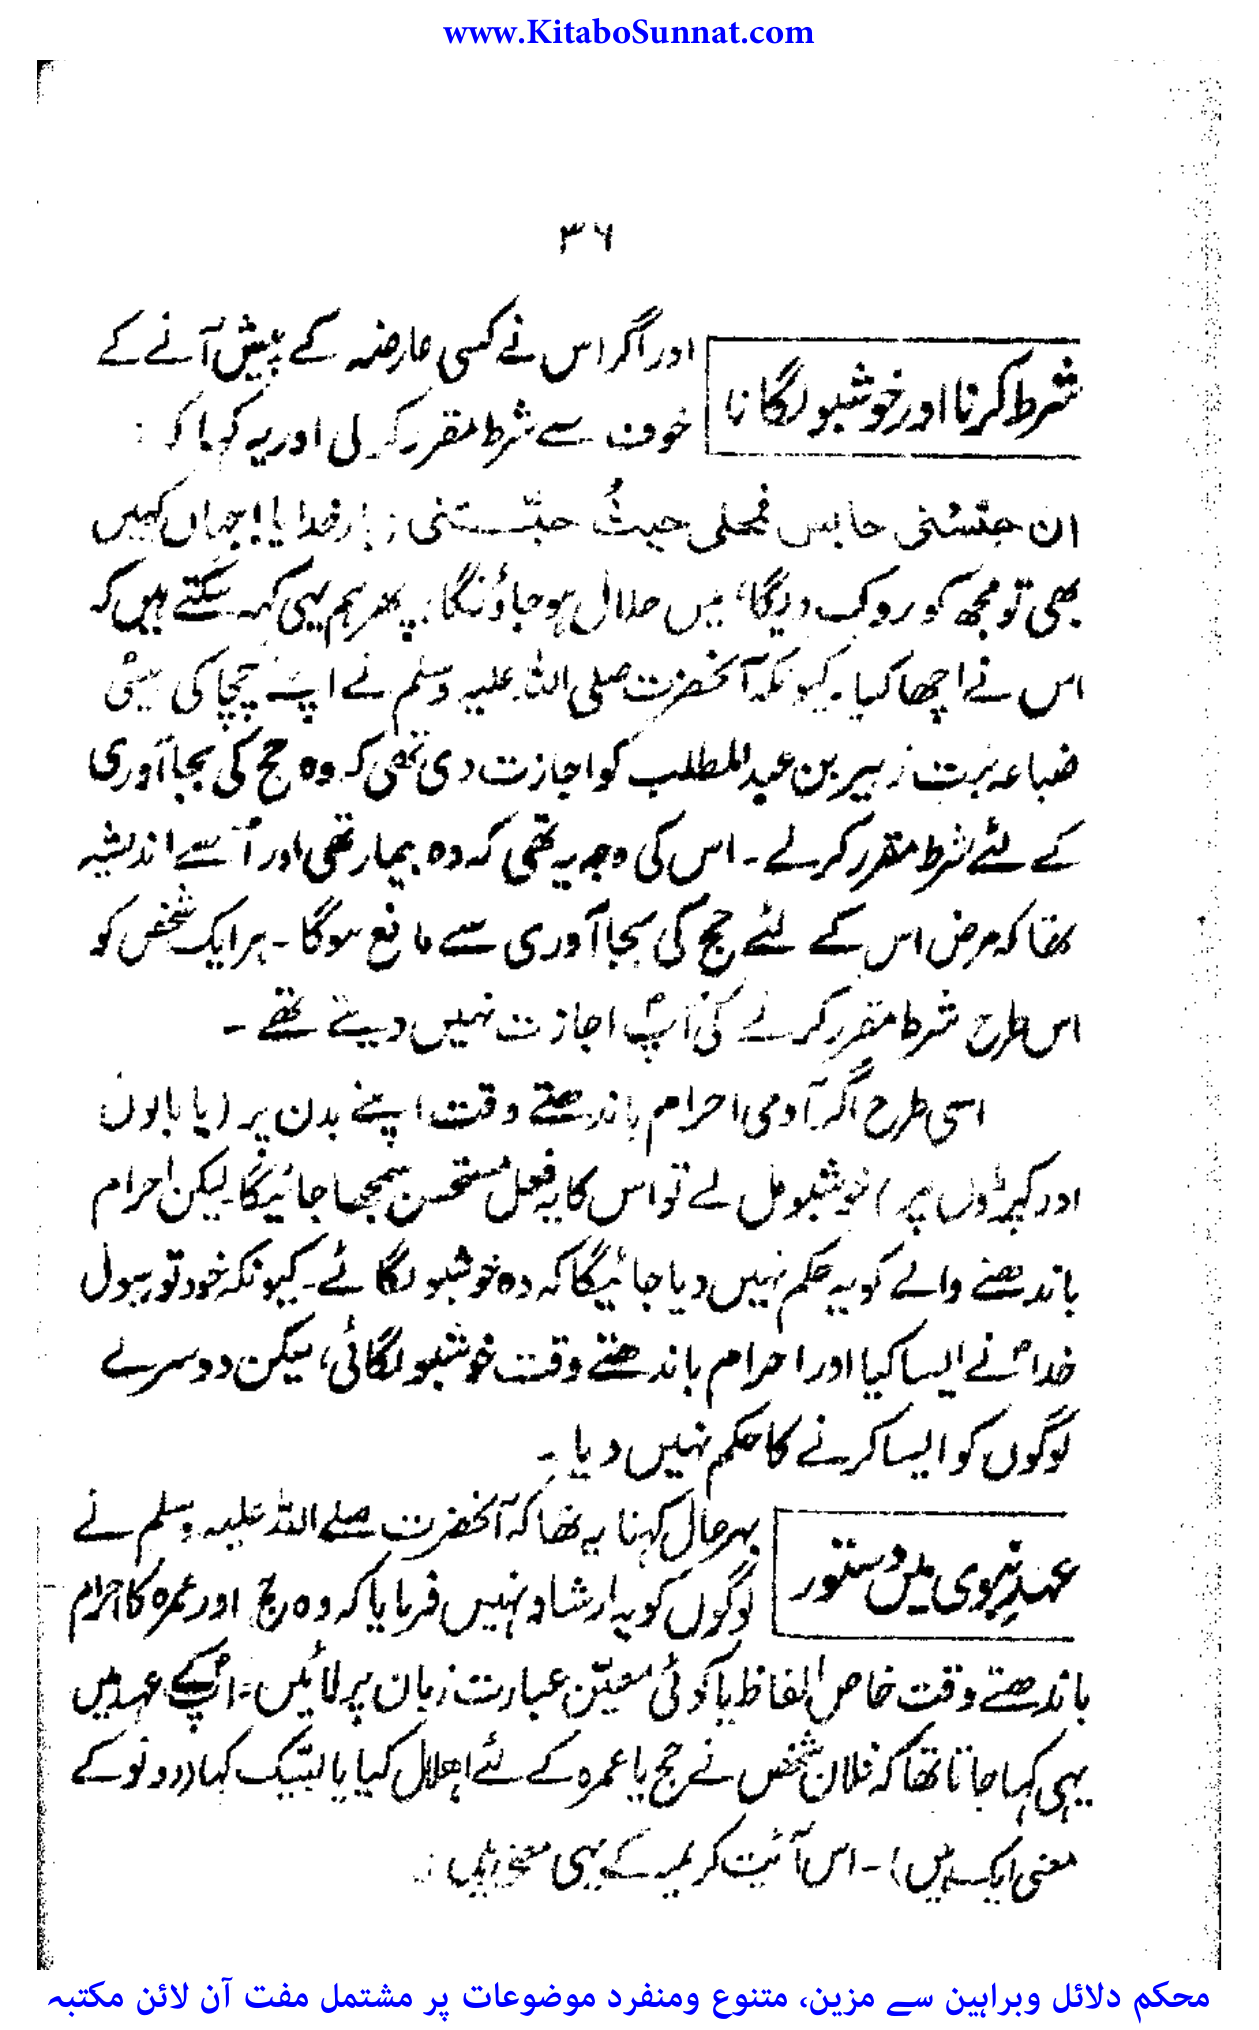 www.KitaboSunnat.com
۳۶
شرط کرنا اور خوشبو لگانا
اور اگر اس نے کسی عارضہ کے پیش آنے کے
خوف سے شرط مقرر کر لی اور یہ کہا کہ :
ان حبسنی حابس فمحلی حیثُ حبستنی : بار خدایا! جہاں کہیں
بھی تو مجھ کو روک دیگا، میں حلال ہو جاؤنگا۔ پھر ہم یہی کہہ سکتے ہیں کہ
اس نے اچھا کیا۔ کیونکہ آنحضرت صلی اللہ علیہ وسلم نے اپنے چچا کی بیٹی
ضباعہ بنت زبیر بن عبدالمطلب کو اجازت دی تھی کہ وہ حج کی بجا آوری
کے لئے شرط مقرر کرلے ۔ اس کی وجہ یہ تھی کہ وہ بیمار تھی اور اُسے اندیشہ
تھا کہ مرض اس کے لئے حج کی بجا آوری سے مانع ہوگا ۔ ہر ایک شخص کو
اس طرح شرط مقرر کرنے کی آپؐ اجازت نہیں دیتے تھے ۔
اسی طرح اگر آدمی احرام باندھتے وقت اپنے بدن پر (یا بالوں
اور کپڑوں پر) خوشبو مل لے تو اس کا یہ فعل مستحسن سمجھا جائیگا۔ لیکن احرام
باندھنے والے کو یہ حکم نہیں دیا جائیگا کہ وہ خوشبو لگائے۔ کیونکہ خود تو رسول
خداؐ نے ایسا کیا اور احرام باندھتے وقت خوشبو لگائی، لیکن دوسرے
لوگوں کو ایسا کرنے کا حکم نہیں دیا ۔
عہدِ نبوی میں دستور
بہرحال کہنا یہ تھا کہ آنحضرت صلے اللہ علیہ وسلم نے
لوگوں کو یہ ارشاد نہیں فرمایا کہ وہ حج اور عمرہ کا احرام
باندھتے وقت خاص الفاظ یا کوئی معیّن عبارت زبان پر لائیں۔ آپؐ کے عہد میں
یہی کہا جاتا تھا کہ فلان شخص نے حج یا عمرہ کے لئے اھلال کیا یا لبّیک کہا (دونو کے
معنی ایک ہیں) ۔ اس آئت کریمہ کے یہی معنے ہیں :
محکم دلائل وبراہین سے مزین، متنوع ومنفرد موضوعات پر مشتمل مفت آن لائن مکتبہ